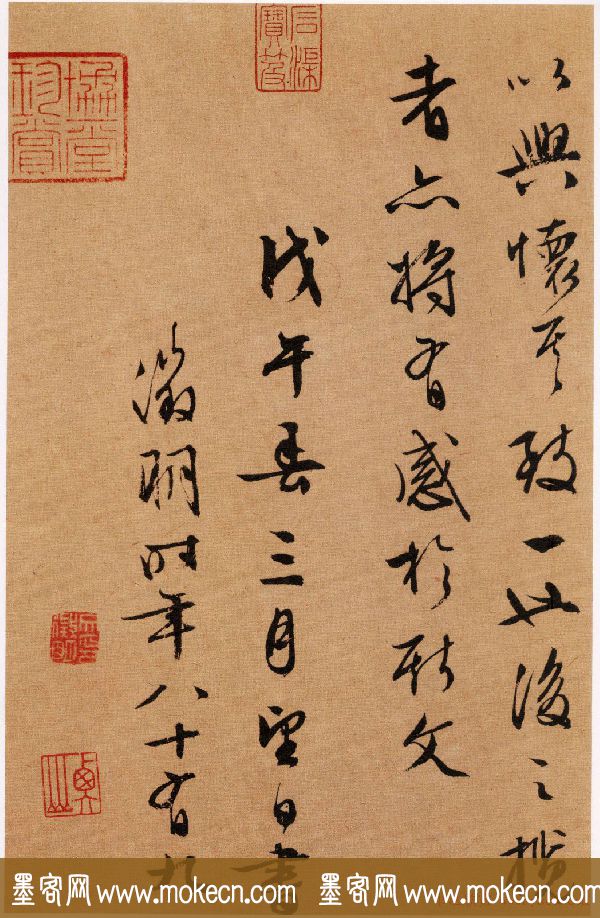 石渠寶笈
協堂珍賞
以興懷其致一也後之攬
者亦將有感於斯文
戊午春三月望日書
徵明時年八十有
墨客网 www.mokecn.com 墨客网 www.mokecn.com